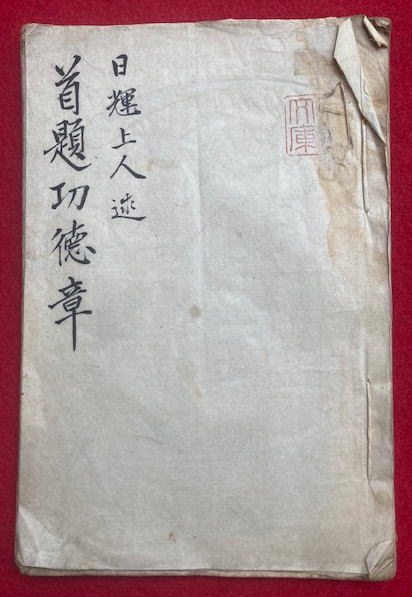 日輝上人述
首題功德章
文庫